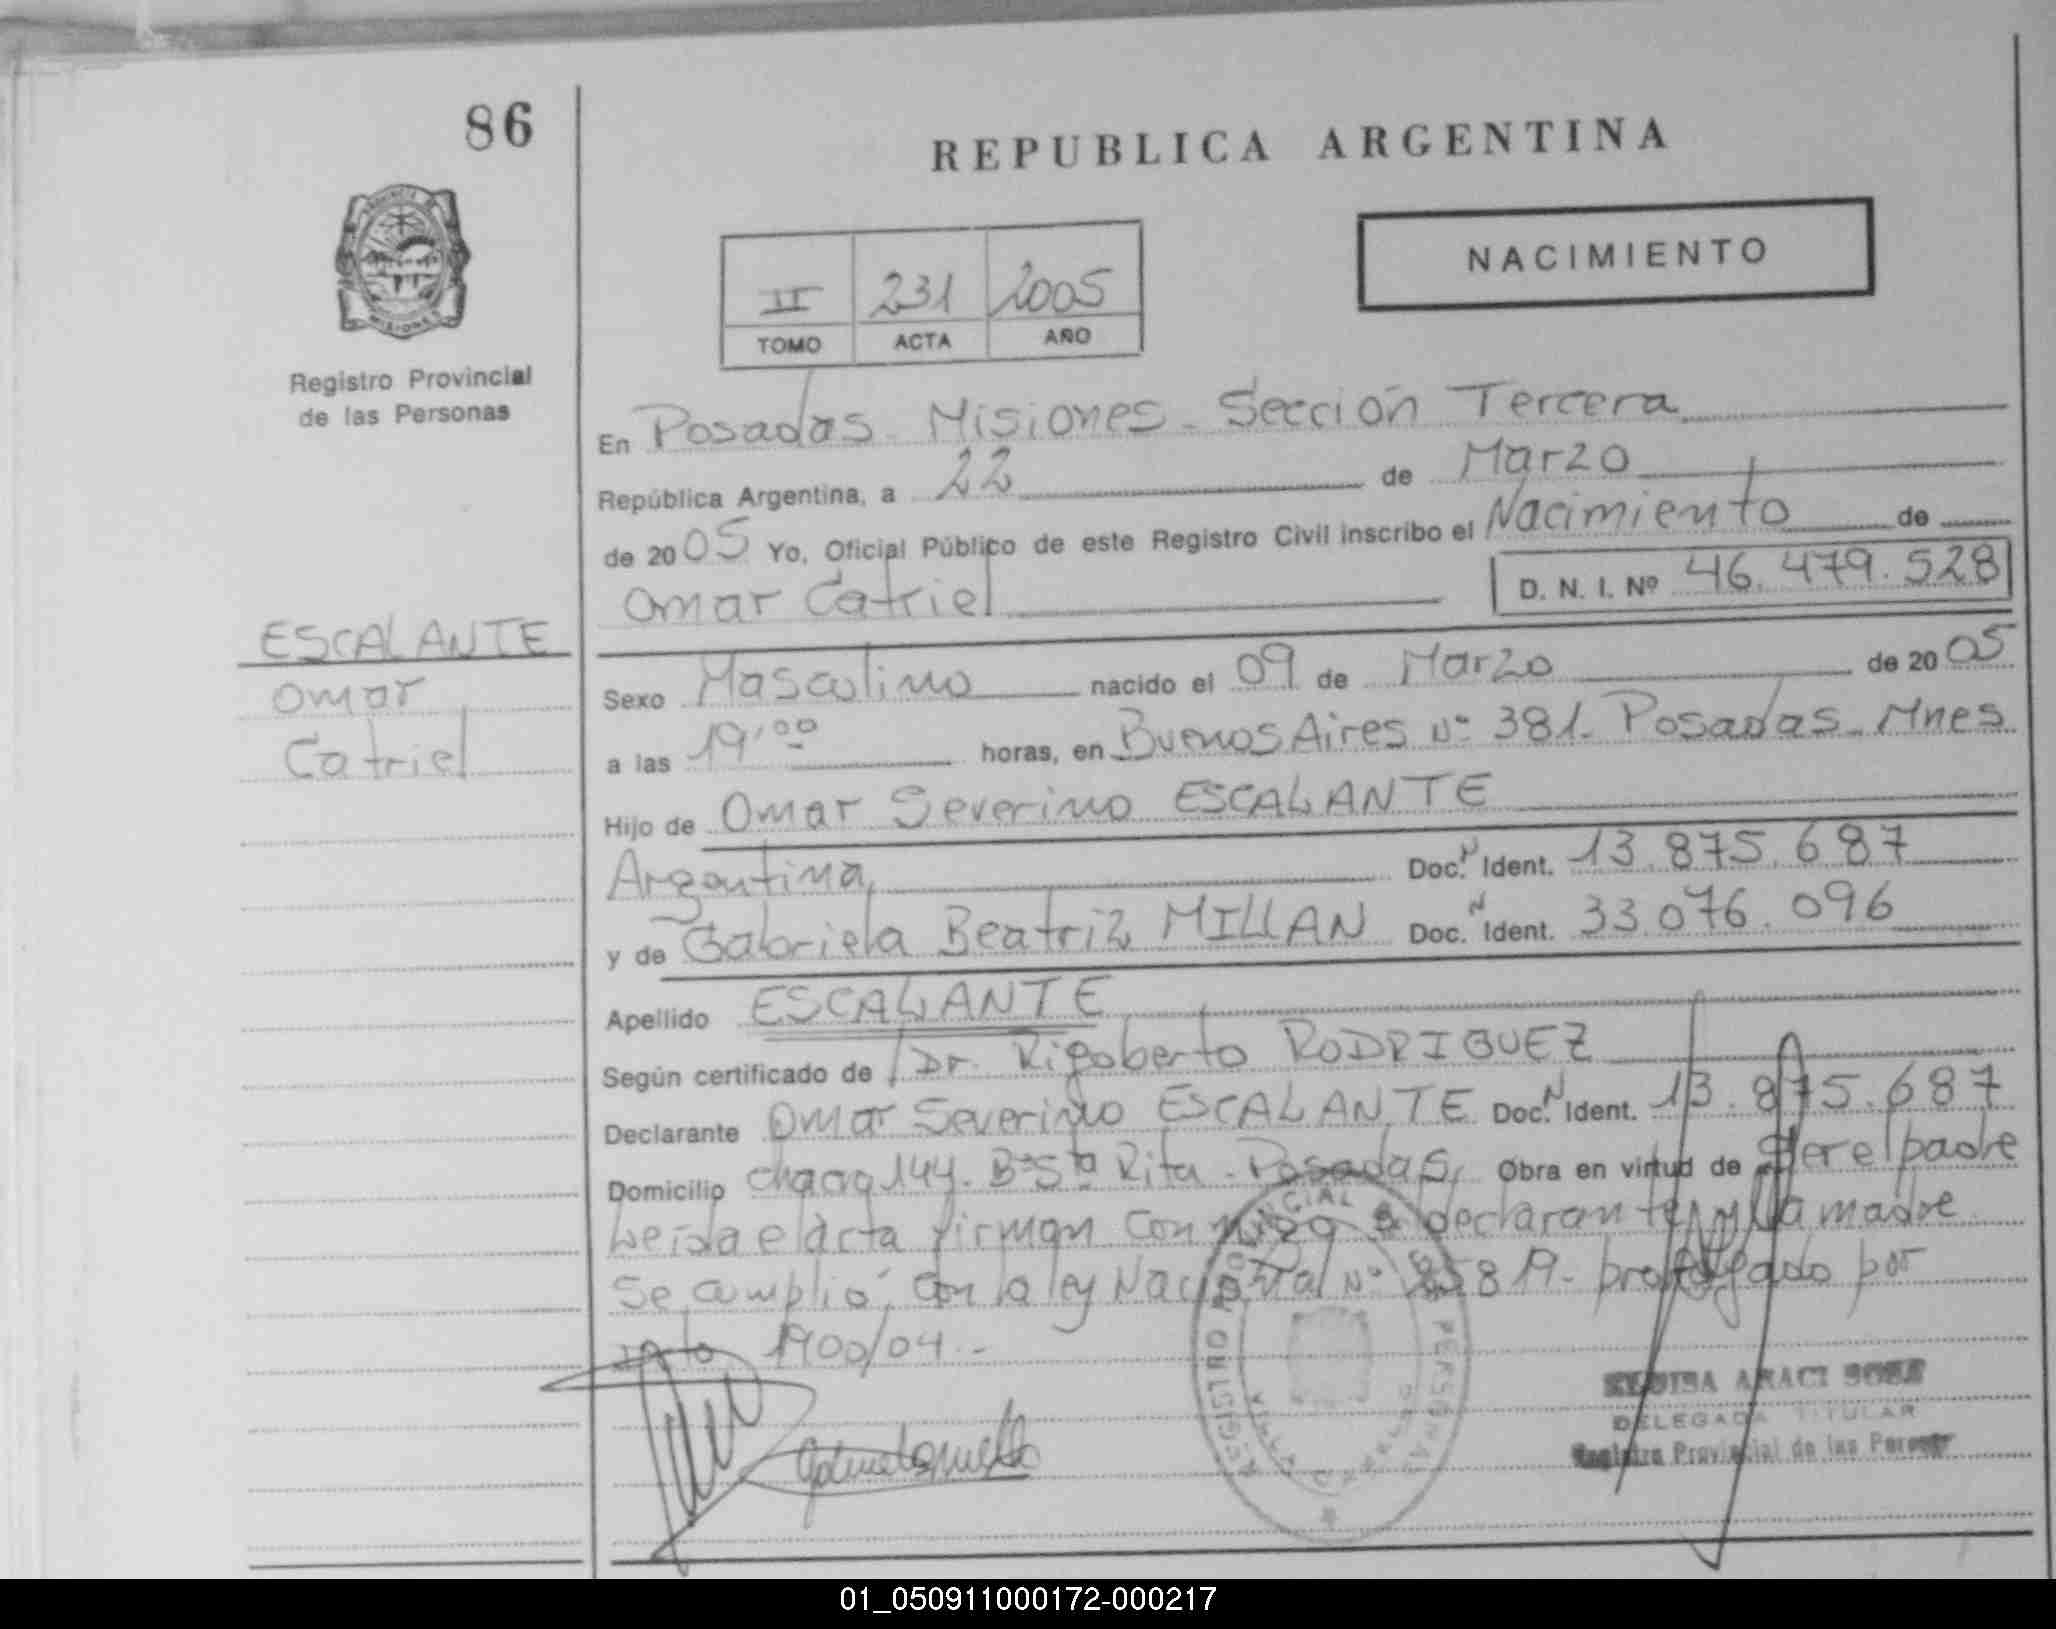 86
REPUBLICA ARGENTINA
NACIMIENTO
II 231 2005
TOMO ACTA AÑO
Registro Provincial
de las Personas
En Posadas - Misiones - Sección Tercera
República Argentina, a 22 de Marzo
de 2005 Yo, Oficial Público de este Registro Civil inscribo el Nacimiento de
Omar Catriel D. N. I. Nº 46.479.528
ESCALANTE
Omar
Catriel
Sexo Masculino nacido el 09 de Marzo de 2005
a las 19,00 horas, en Buenos Aires Nº 381 - Posadas - Mnes
Hijo de Omar Severino ESCALANTE
Argentina Doc. N Ident. 13.875.687
y de Gabriela Beatriz MILLAN Doc. N Ident. 33.076.096
Apellido ESCALANTE
Según certificado de Dr. Rigoberto RODRIGUEZ
Declarante Omar Severino ESCALANTE Doc. N Ident. 13.875.687
Domicilio chacra 144. Bº Sta Rita - Posadas, Obra en virtud de ser el padre
Leída el acta firman conmigo el declarante y la madre
Se cumplió con la ley Nacional Nº 25819 - prorrogado por
1900/04.-
REGISTRO PROVINCIAL DE PERSONAS
ARACI
DELEGADA TITULAR
Registro Provincial de las Personas
01_050911000172-000217